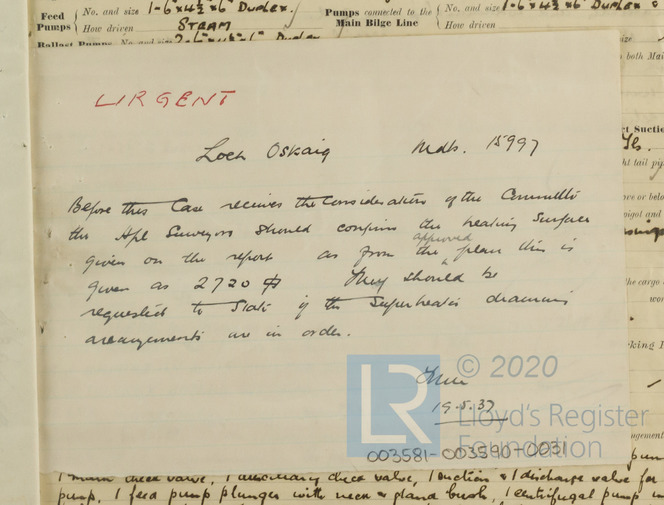 Feed Pumps { No. and size 1-6"x4½"x6" Duplex.
How driven STEAM
Pumps connected to the Main Bilge Line { No. and size 1-6"x4½"x6" Duplex
How driven
Ballast Pumps No. and size 2-6"
size
both Mai
URGENT
Loch Oskaig Mdb. 15997
Before this Case receives the Consideration of the Committee
the Hpl Surveyors should confirm the heating Surface
given on the report as from the approved plan this is
given as 2720 They should be
requested to State if the Superheater draining
arrangements are in order.
19.5.37
LR © 2020
Lloyd's Register
Foundation
003581-003590-0031
ct Suctio
ht tail pi
ve or belo
pigot and
the cargo
king
ngement
1 main check valve, 1 auxiliary check valve, 1 suction & 1 discharge valve for
pump, 1 feed pump plunger with neck & gland bush, 1 centrifugal pump